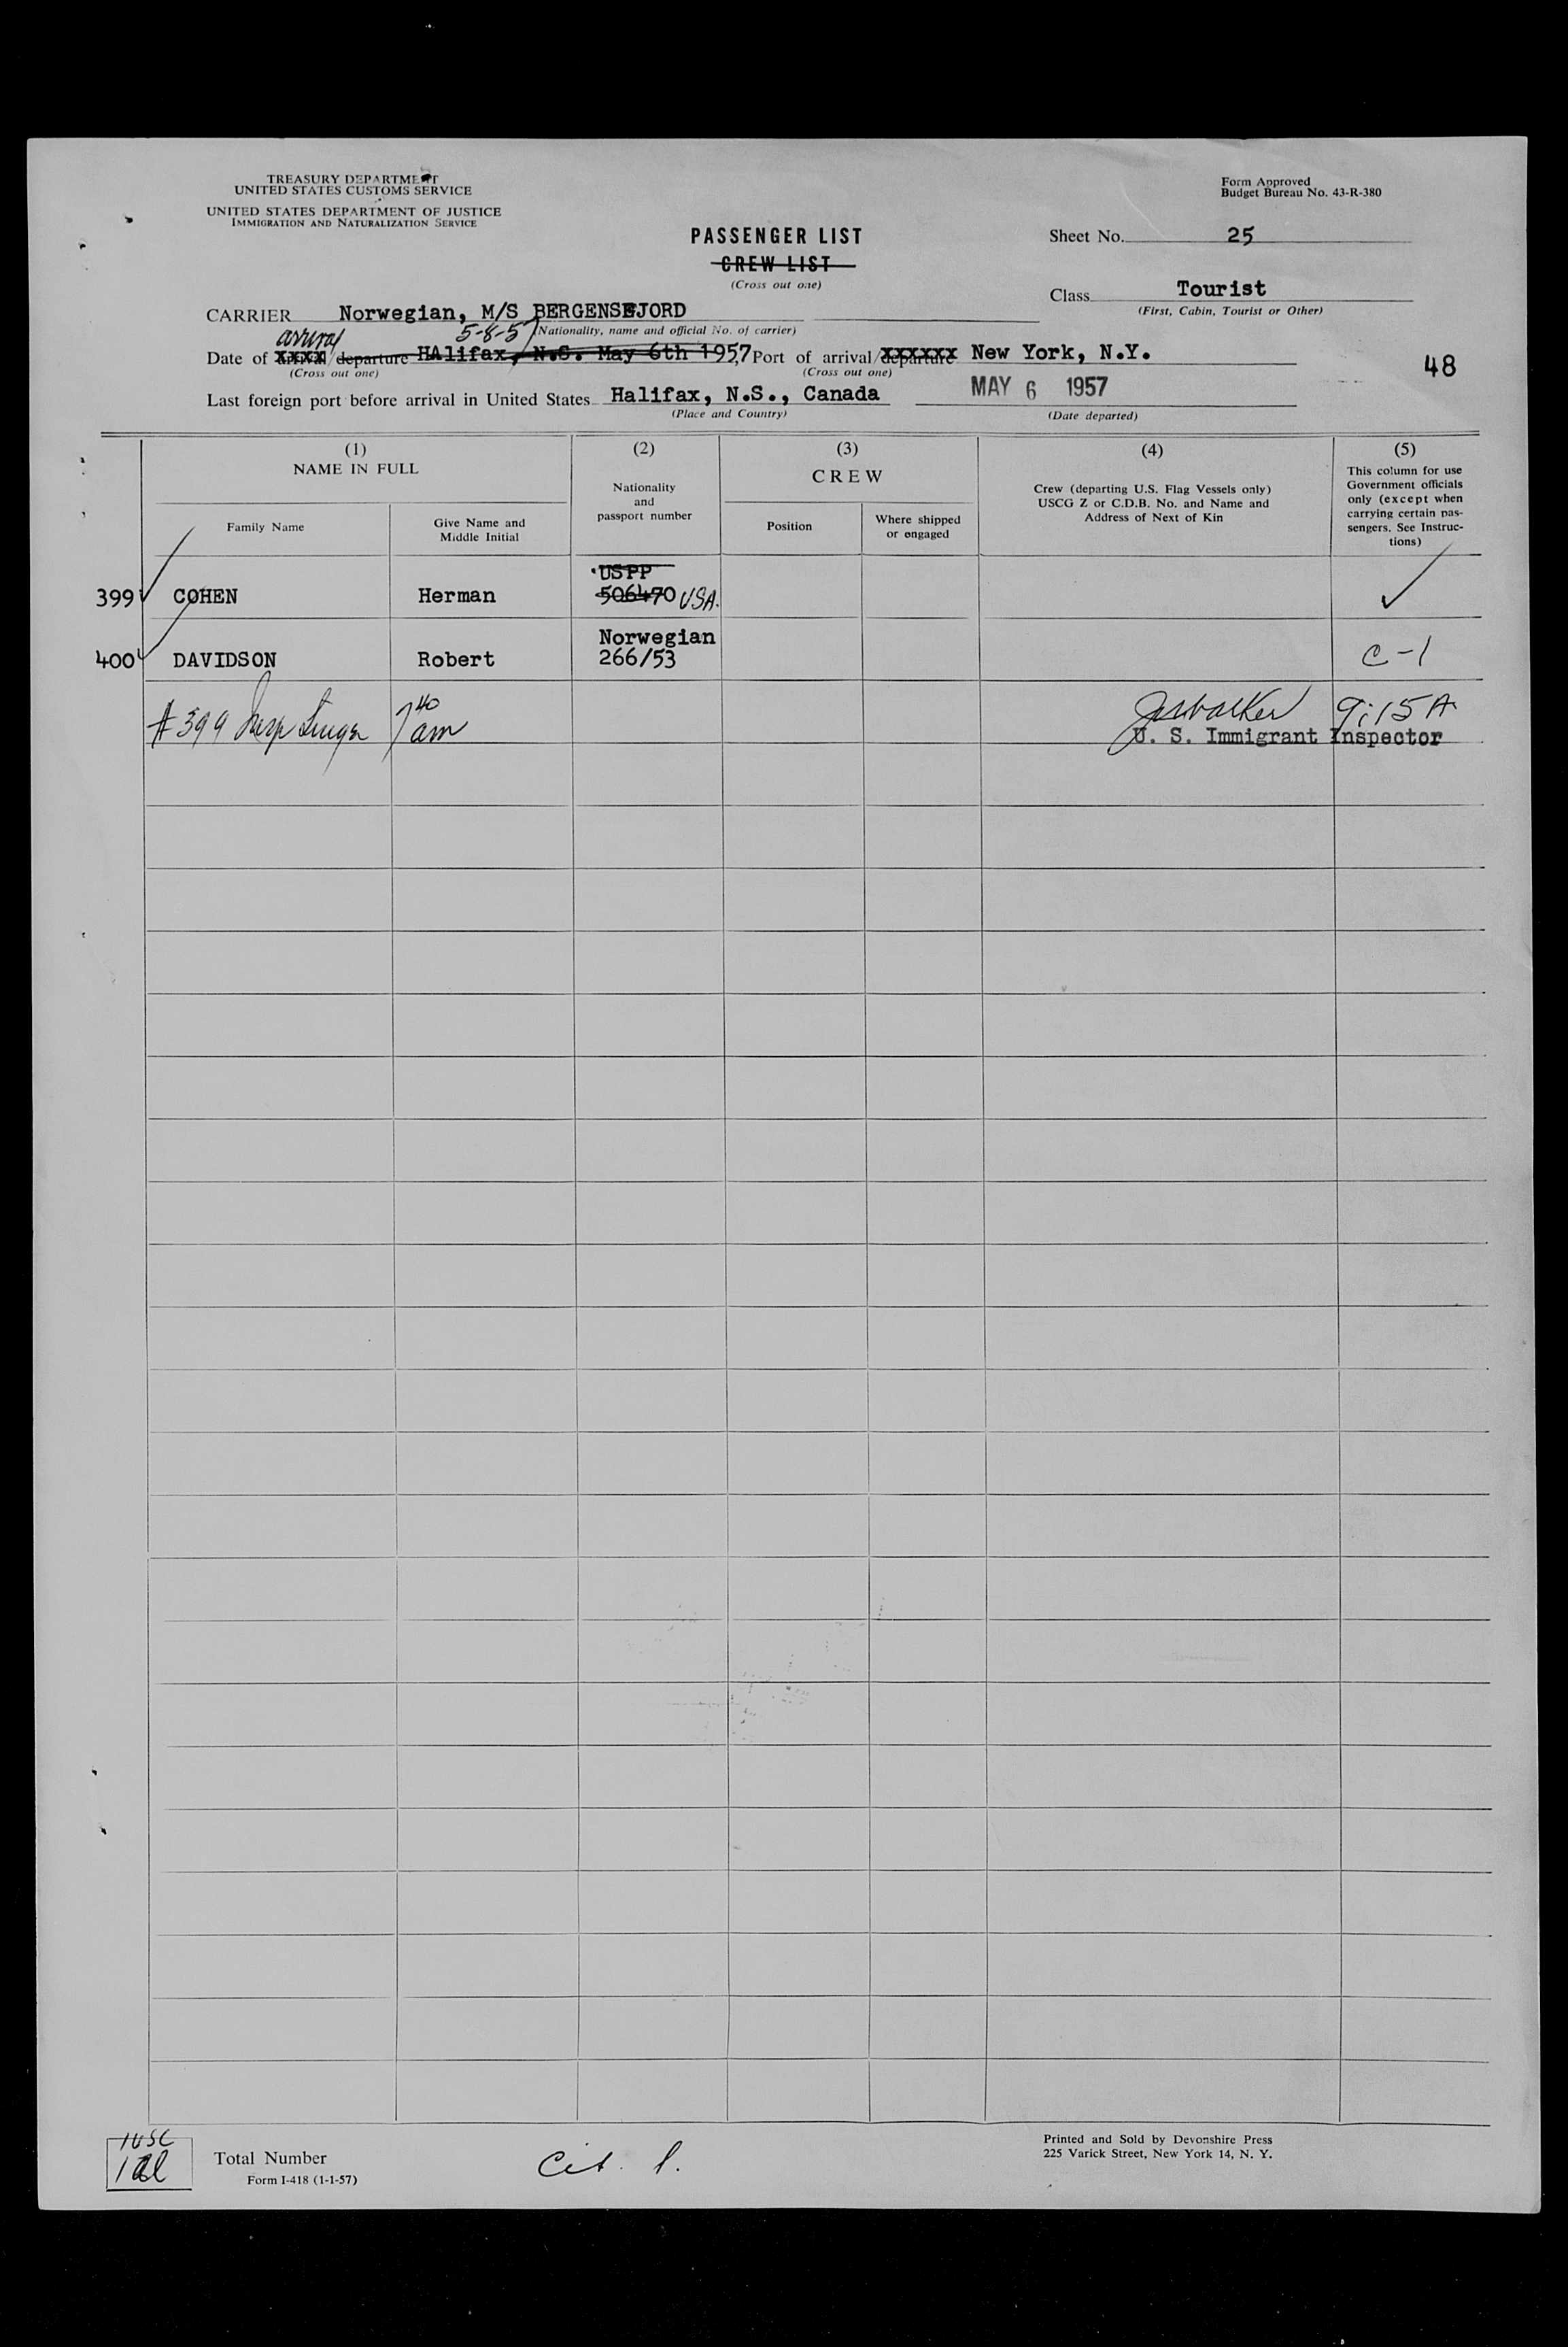 TREASURY DEPARTMENT
UNITED STATES CUSTOMS SERVICE
UNITED STATES DEPARTMENT OF JUSTICE
IMMIGRATION AND NATURALIZATION SERVICE
Form Approved
Budget Bureau No. 43-R-380
PASSENGER LIST
CREW LIST
(Cross out one)
Sheet No. 25
Class Tourist
(First, Cabin, Tourist or Other)
CARRIER Norwegian, M/S BERGENSFJORD
(Nationality, name and official No. of carrier)
arrival 5-8-57
Date of XXXX / departure HAlifax, N.S. May 6th 1957 Port of arrival/departure New York, N.Y.
(Cross out one) (Cross out one)
48
Last foreign port before arrival in United States Halifax, N.S., Canada MAY 6 1957
(Place and Country) (Date departed)
(1) (2) (3) (4) (5)
NAME IN FULL
Family Name
Give Name and
Middle Initial
Nationality
and
passport number
CREW
Position
Where shipped
or engaged
Crew (departing U.S. Flag Vessels only)
USCG Z or C.D.B. No. and Name and
Address of Next of Kin
This column for use
Government officials
only (except when
carrying certain pas-
sengers. See Instruc-
tions)
USPP
399 COHEN Herman 506470 USA.
Norwegian
400 DAVIDSON Robert 266/53 C-1
# 399 Insp 7 40 am 9:15 A
U. S. Immigrant Inspector
1 USC
1 al
Total Number
Form I-418 (1-1-57)
Cit. 1.
Printed and Sold by Devonshire Press
225 Varick Street, New York 14, N. Y.